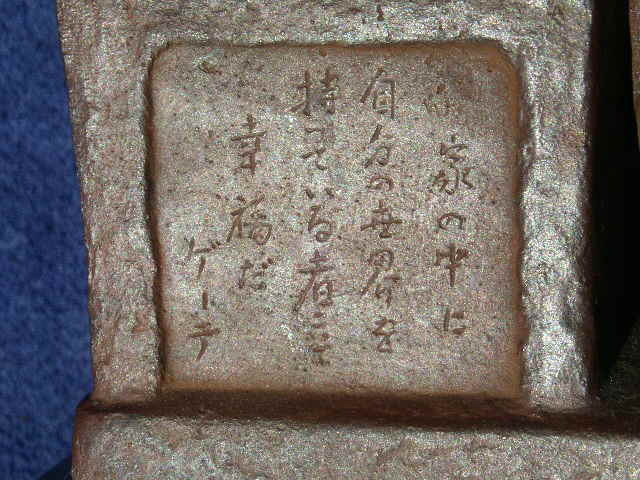 家の中に
自分の世界を
持っている者こそ
幸福だ
ゲーテ